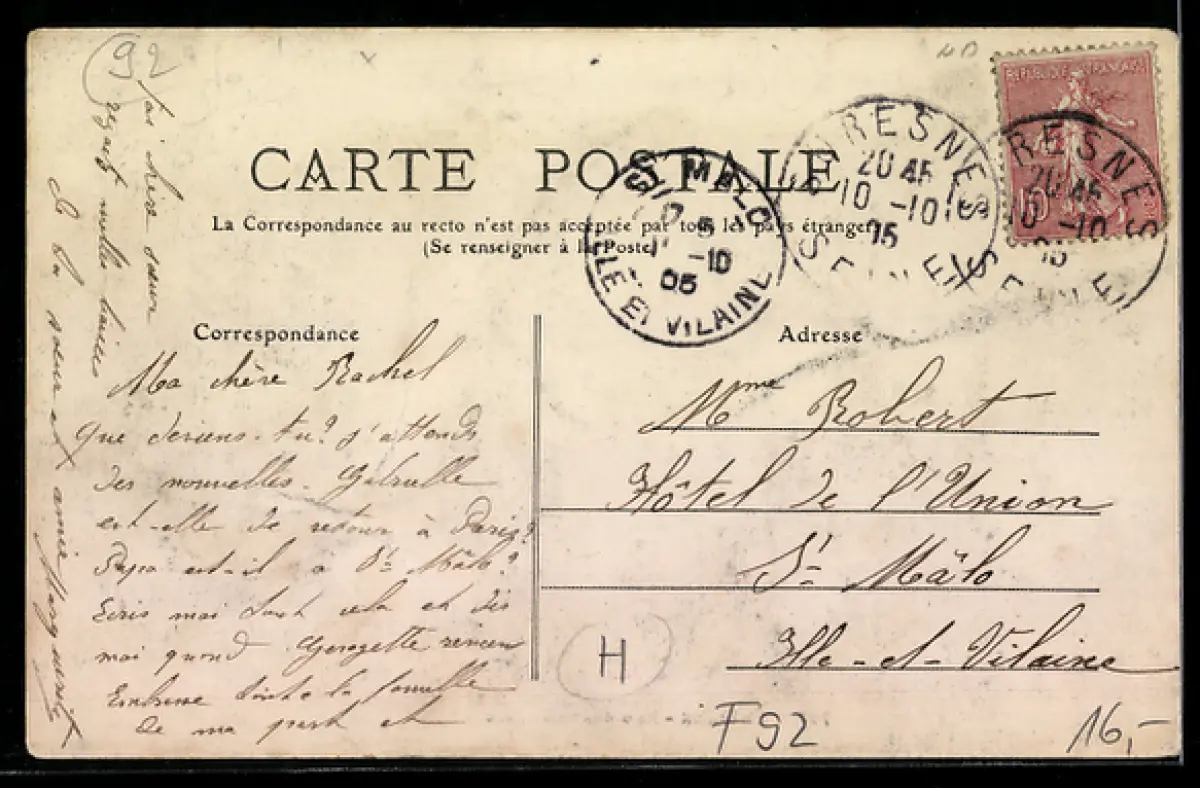 92
CARTE POSTALE
La Correspondance au recto n'est pas acceptée par tous les pays étrangers
(Se renseigner à la Poste)
REPUBLIQUE FRANÇAISE
10
SURESNES
20 45
10 -10
05
SEINE
SURESNES
20 45
10 -10
05
SEINE
ST MALO
5
11 -10
05
ILLE ET VILAINE
Correspondance
Ma chère Rachel
Que deviens-tu? J'attends
des nouvelles. Gabrielle
est-elle de retour à Paris?
Papa est-il à St Mâlo?
Ecris moi tout cela et dis
moi quand Georgette revien
Embrasse toute la famille
de ma part et
fais
reçois mille baisers
de ta soeur et amie Marguerite
Adresse
Mme Robert
Hôtel de l'Union
St Mâlo
Ille-et-Vilaine
H
F92
16,-